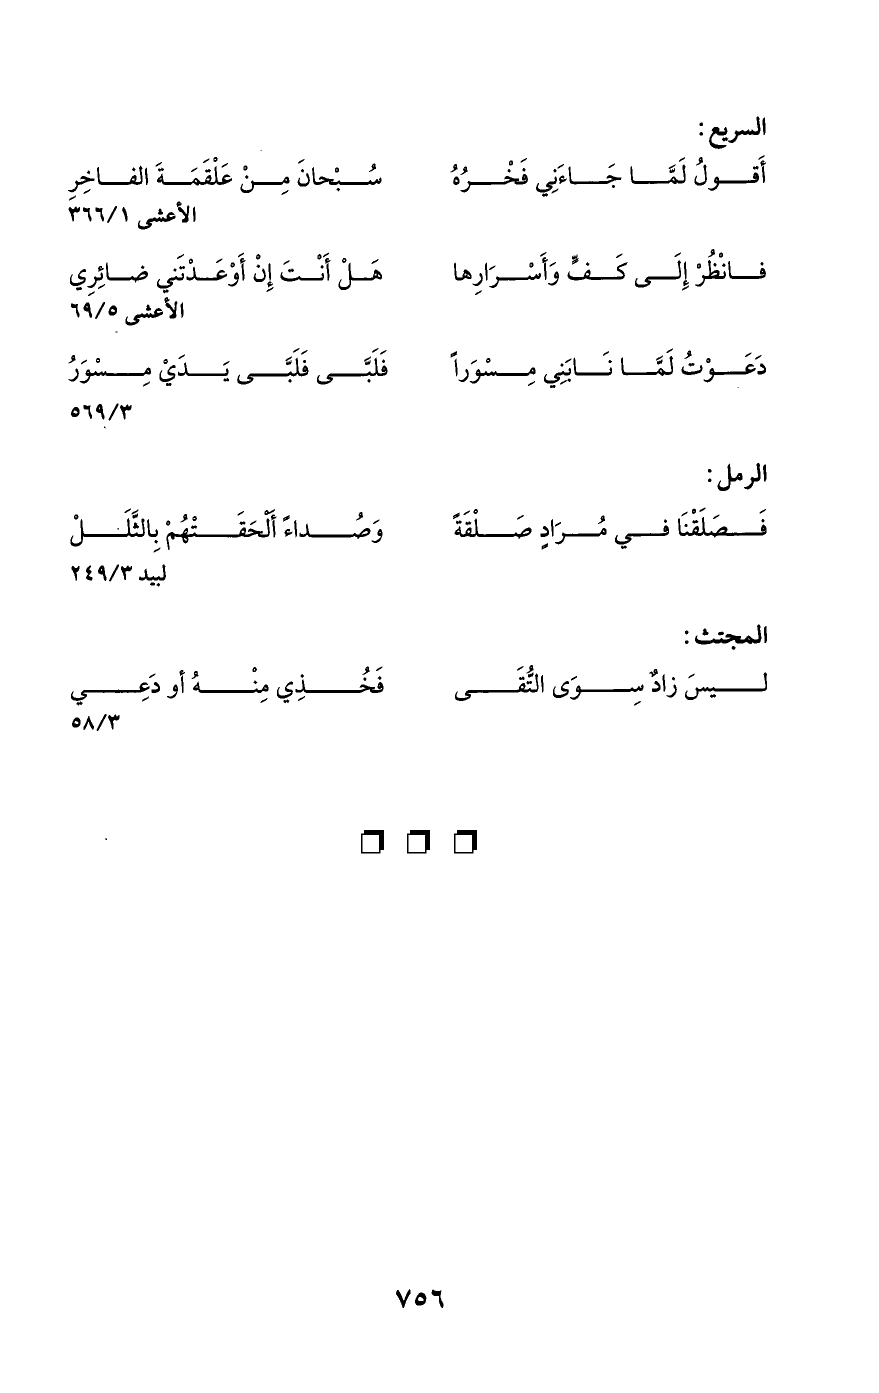 السريع:
أَقولُ لَمَّا جَاءَنِي فَخْرُهُ سُبْحانَ مِنْ عَلْقَمَةَ الفاخِرِ
الأعشى ٣٦٦/١
فانْظُرْ إِلَى كَفٍّ وَأَسْرَارِها هَلْ أَنْتَ إِنْ أَوْعَدْتَني ضائِرِي
الأعشى ٦٩/٥
دَعَوْتُ لَمَّا نَابَنِي مِسْوَراً فَلَبَّى فَلَبَّى يَدَيْ مِسْوَرُ
٥٦٩/٣
الرمل:
فَصَلَقْنَا في مُرَادٍ صَلْقَةً وَصُداءً أَلْحَقَتْهُمْ بِالثَّلَلْ
لبيد ٢٤٩/٣
المجتث:
ليسَ زادٌ سِوَى التُّقَى فَخُذِي مِنْهُ أو دَعِي
٥٨/٣
٧٥٦